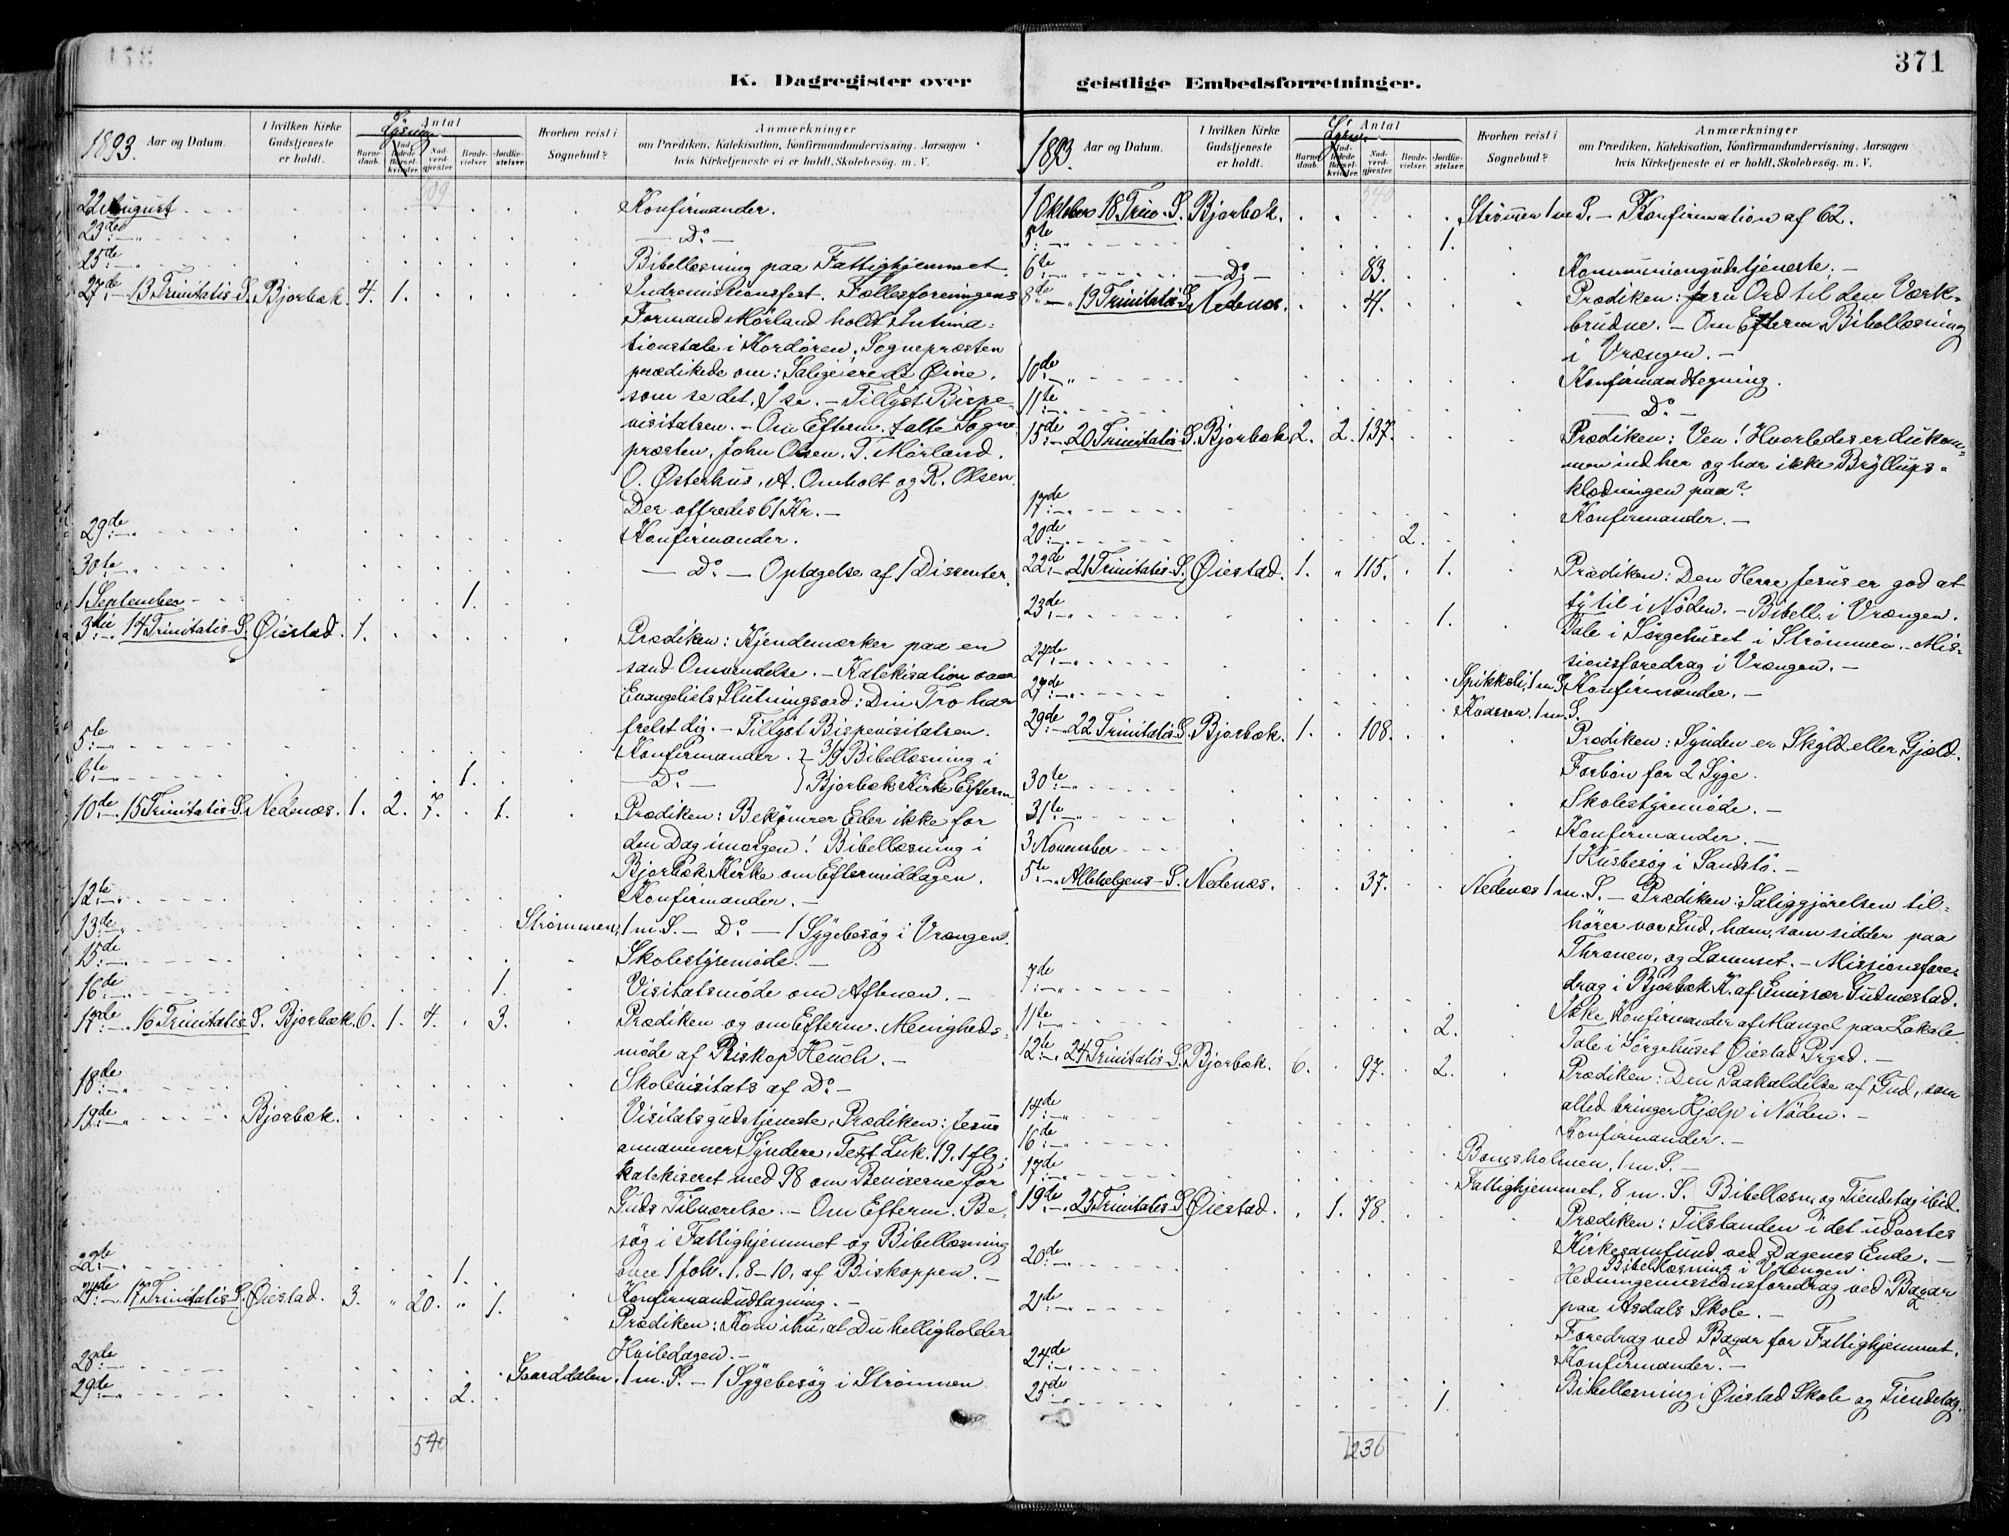 371
K. Dagregister over geistlige Embedsforretninger.
1893. Aar og Datum.
I hvilken Kirke Gudstjeneste er holdt.
Antal
Lysning
Barnedaab.
Indledede Barselkvinder.
Nadverdgjæster.
Brudevielser.
Jordfæstelser.
Hvorhen reist i Sognebud?
Anmærkninger
om Prædiken, Katekisation, Konfirmandundervisning, Aarsagen hvis Kirketjeneste ei er holdt, Skolebesøg. m. V.
22 August Konfirmander.
23de — Do —
25de Bibellæsning paa Fattighjemmet.
27de 13 Trinitatis S. Bjorbæk. 4. 1. Indremissionsfest. Fællesforeningens
Formand Mørland holdt Intima=
tionstale i Kordøren. Sognepræsten
prædikede om: Salige ere de Øine,
som se det, I se. — Tillyst Bispe-
visitatsen. — Om Efterm. talte Sogne
præsten, John Olsen, T. Mørland.
O. Østerhus, A. Omholt og R. Olsen.
Der offredes 61 Kr. —
29de Konfirmander.
30te — Do — Optagelse af 1 Dissenter.
1 September 1.
3die 14 Trinitatis S. Øiestad. 1. Prædiken: Kjendemærker paa en
sand Omvendelse. — Katekisation over
Evangeliets Slutningsord: Din Tro har
frelst dig. — Tillyst Bispevisitatsen.
5te Konfirmander. } 3/9 Bibellæsning i
6te 1. — Do — } Bjorbæk Kirke Efterm.
10de 15 Trinitatis S. Nedenæs. 1. 2. 7. 1. Prædiken: Bekymrer Eder ikke for
den Dag imorgen! Bibellæsning i
Bjorbæk Kirke om Eftermiddagen.
12te Konfirmander. —
13de Strømmen, 1 m S. — Do — 1 Sygebesøg i Vrængen.
15de Skolestyremøde. —
16de 1. Visitatsmøde om Aftenen. —
17de 16 Trinitatis S. Bjorbæk. 6. 1. 4. 3. Prædiken og om Efterm. Menigheds=
møde af Biskop Heuch. —
18de Skolevisitats af Do —
19de Bjorbæk. Visitatsgudstjeneste, Prædiken: Jesus
annammer Syndere, Text Luk. 19, 1 flg;
katekiseret med 98 om Beviserne for
Guds Tilværelse. — Om Efterm. Be-
søg i Fattighjemmet og Bibellæsning
22de 1. over 1 Joh. 1, 8-10, af Biskoppen. —
24de 17 Trinitatis S. Øiestad. 3. " 20. " 1. Konfirmandudtagning. —
Prædiken: Kom ihu, at Du helligholder
Hviledagen. —
28de Saarddalen, 1 m. S. — 1 Sygebesøg i Strømmen
29de 2.
540
1893. Aar og Datum.
I hvilken Kirke Gudstjeneste er holdt.
Antal
Barnedaab.
Indledede Barselkvinder.
Nadverdgjæster.
Brudevielser.
Jordfæstelser.
Hvorhen reist i Sognebud?
Anmærkninger
om Prædiken, Katekisation, Konfirmandundervisning, Aarsagen hvis Kirketjeneste ei er holdt, Skolebesøg. m. V.
1 Oktober 18 Trin. S. Bjorbæk. Strømmen 1 m S. — Konfirmation af 62.
5te 1.
6te — Do — 83. Kommuniongudstjeneste. —
8de 19 Trinitatis S. Nedenæs. 41. Prædiken: Jesu Ord til den Værk-
brudne. — Om Efterm. Bibellæsning
i Vrængen. —
10de Konfirmandtegning.
11te — Do —
15de 20 Trinitatis S. Bjorbæk 2. 2. 137. Prædiken: Ven! Hvorledes er du kom-
men ind her og har ikke Bryllups-
klædningen paa?
17de Konfirmander. —
20de 2.
22de 21 Trinitatis S. Øiestad. 1. " 115. 1. Prædiken: Den Herre Jesus er god at
ty til i Nøden. — Bibell. i Vrængen.
23de 1. Tale i Sørgehuset i Strømmen. — Mis-
sionsforedrag i Vrængen. —
24de Konfirmander. —
27de Spikkeli, 1 m. S.
1 m. S.
29de 22 Trinitatis S. Bjorbæk. 1. 108. Prædiken: Synden er Skyld eller Gjæld.
Forbøn for 2 Syge.
30te Skolestyremøde. —
31te Konfirmander. —
3 November 1 Husbesøg i Sandstø. —
5te Allehelgens S. Nedenæs. 37. Nedenæs 1 m. S. — Prædiken: Saliggjørelsen til-
hører vor Gud, ham, som sidder paa
Thronen, og Lammet. — Missionsfore-
drag i Bjorbæk K. af Emissær Gudmestad.
7de Ikke Konfirmander af Mangel paa Lokale.
11te 2. Tale i Sørgehuset Øiestad Prgrd. —
12te 24 Trinitatis S. Bjorbæk. 6. 97. 2. Prædiken: Den Paakaldelse af Gud, som
altid bringer Hjælp i Nøden. —
14de Konfirmander. —
16de Bomsholmen, 1 m. S. —
17de Fattighjemmet, 8 m. S. Bibellæsn. og Tiendetag. ibid.
19de 25 Trinitatis S. Øiestad. 1. 78. Prædiken: Tilstanden i det udvortes
Kirkesamfund ved Dagenes Ende. —
Bibellæsning i Vrængen.
20de Hedningemissionsforedrag ved Bagar
paa Asdals Skole. —
21de Foredrag ved Bagar for Fattighjemmet.
24de Konfirmander. —
25de 1. Bibellæsning i Øiestad Skole og Tiendetag.
1236